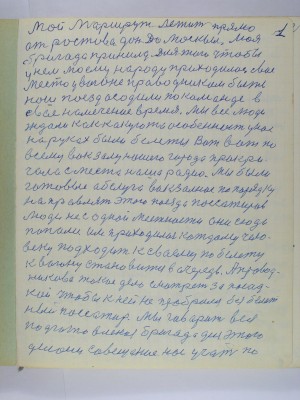 1
Мой Маршрут лежит прямо
от ростова дон до Москвы. Моя
бригада принила для того чтобы
у нем моему народу приходилось свое
место у вагоне праводником быть
наш поезд сходили по команде в
свое назначение время. Мы все люди
ждали как какуюто особенность у нас
на руках были белеты Вот в этом по
всему вокзалу нашего города прокри
чала с места наша радио. Мы были
готовые абслуга вокзалное по порядку
направлят этого поезда поссажиров
Люди не с одной местности они сюда
попали им приходилося каждому чело-
веку подходит к сваему по белоту
к вагону становится в очередь. А провод-
никова такое дело смотрет за посад-
кой чтобы к ней не пробрался без белет
ный поссажир. Мы гаварят вся
подготовленая бригада для этого
делоли совещание нас учат по